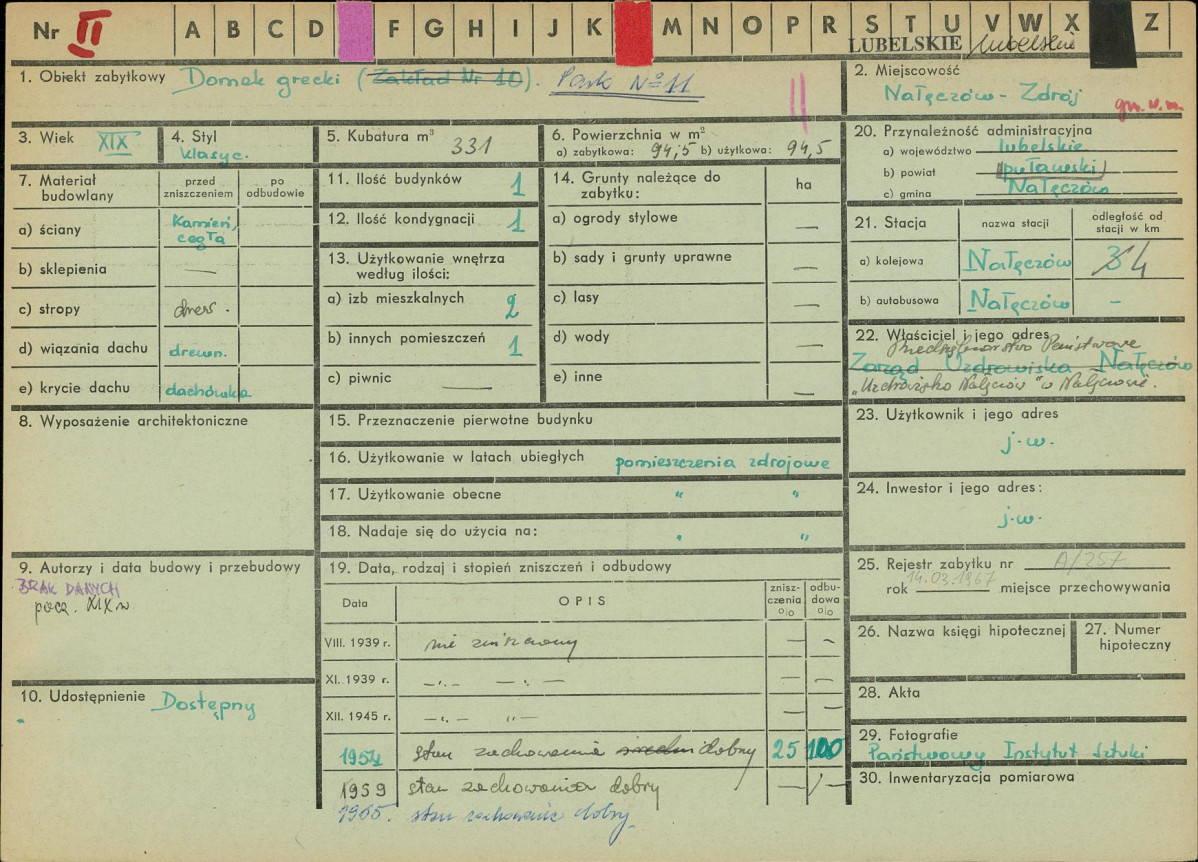 Nr II A B C D F G H I J K M N O P R S T U V W X Z
LUBELSKIE lubelskie
1. Obiekt zabytkowy Domek grecki (Zakład Nr 10). Park No 11
2. Miejscowość
Nałęczów - Zdrój
gm. w. m.
3. Wiek XIX
4. Styl
klasyc.
5. Kubatura m³ 331
6. Powierzchnia w m²
a) zabytkowa: 94,5 b) użytkowa: 94,5
7. Materiał budowlany
przed zniszczeniem
po odbudowie
a) ściany Kamień, cegła
b) sklepienia —
c) stropy drew.
d) wiązania dachu drewn.
e) krycie dachu dachówka
8. Wyposażenie architektoniczne
9. Autorzy i data budowy i przebudowy
BRAK DANYCH
pocz. XIX w
10. Udostępnienie Dostępny
11. Ilość budynków 1
12. Ilość kondygnacji 1
13. Użytkowanie wnętrza
według ilości:
a) izb mieszkalnych 2
b) innych pomieszczeń 1
c) piwnic —
14. Grunty należące do
zabytku:
ha
a) ogrody stylowe —
b) sady i grunty uprawne —
c) lasy —
d) wody —
e) inne —
15. Przeznaczenie pierwotne budynku
16. Użytkowanie w latach ubiegłych pomieszczenia zdrojowe
17. Użytkowanie obecne " "
18. Nadaje się do użycia na: " "
19. Data, rodzaj i stopień zniszczeń i odbudowy
Data
OPIS
znisz-
czenia
o|o
odbu-
dowa
o|o
VIII. 1939 r. nie zniszczony — —
XI. 1939 r. —„— —„— — —
XII. 1945 r. —„— „— — —
1954 stan zachowania średni dobry 25 100
1959 stan zachowania dobry — / —
1965. stan zachowania dobry
20. Przynależność administracyjna
a) województwo lubelskie
b) powiat (puławski)
c) gmina Nałęczów
21. Stacja
nazwa stacji
odległość od
stacji w km
a) kolejowa Nałęczów 3 4
b) autobusowa Nałęczów -
22. Właściciel i jego adres
Przedsiębiorstwo Państwowe
Zarząd Uzdrowiska Nałęczów
„Uzdrowisko Nałęczów" w Nałęczowie.
23. Użytkownik i jego adres
j.w.
24. Inwestor i jego adres:
j.w.
25. Rejestr zabytku nr A/257
rok 14.03.1967 miejsce przechowywania
26. Nazwa księgi hipotecznej
27. Numer
hipoteczny
28. Akta
29. Fotografie
Państwowy Instytut Sztuki
30. Inwentaryzacja pomiarowa